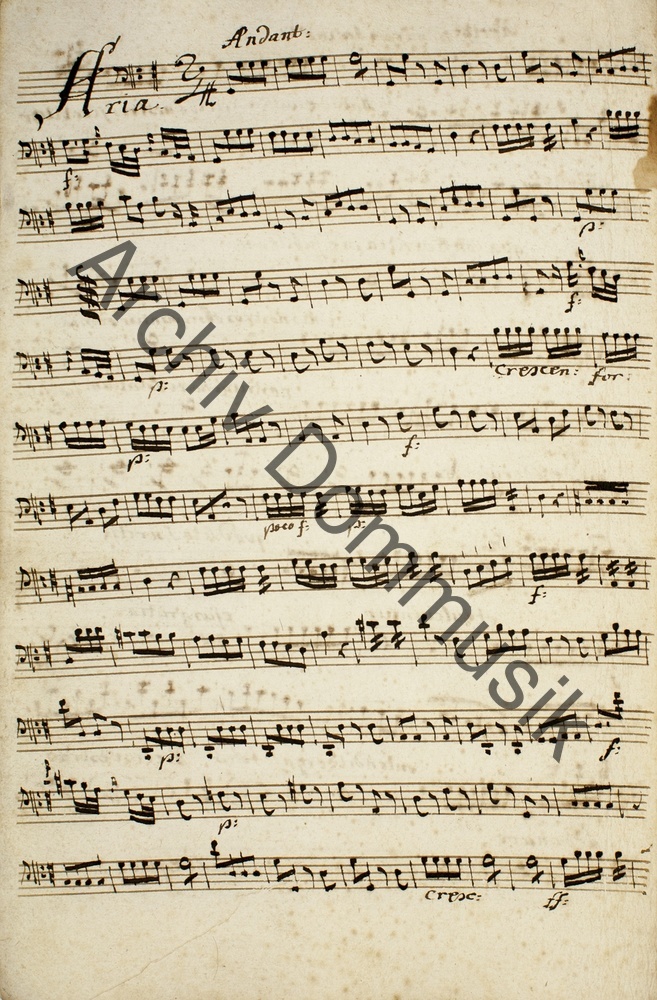 Andant:
Aria
2/4
f:
p:
f:
p: Crescen: for:
p: f:
poco f: p:
f:
p: f:
p:
cresc: ff:
Archiv Dommusik